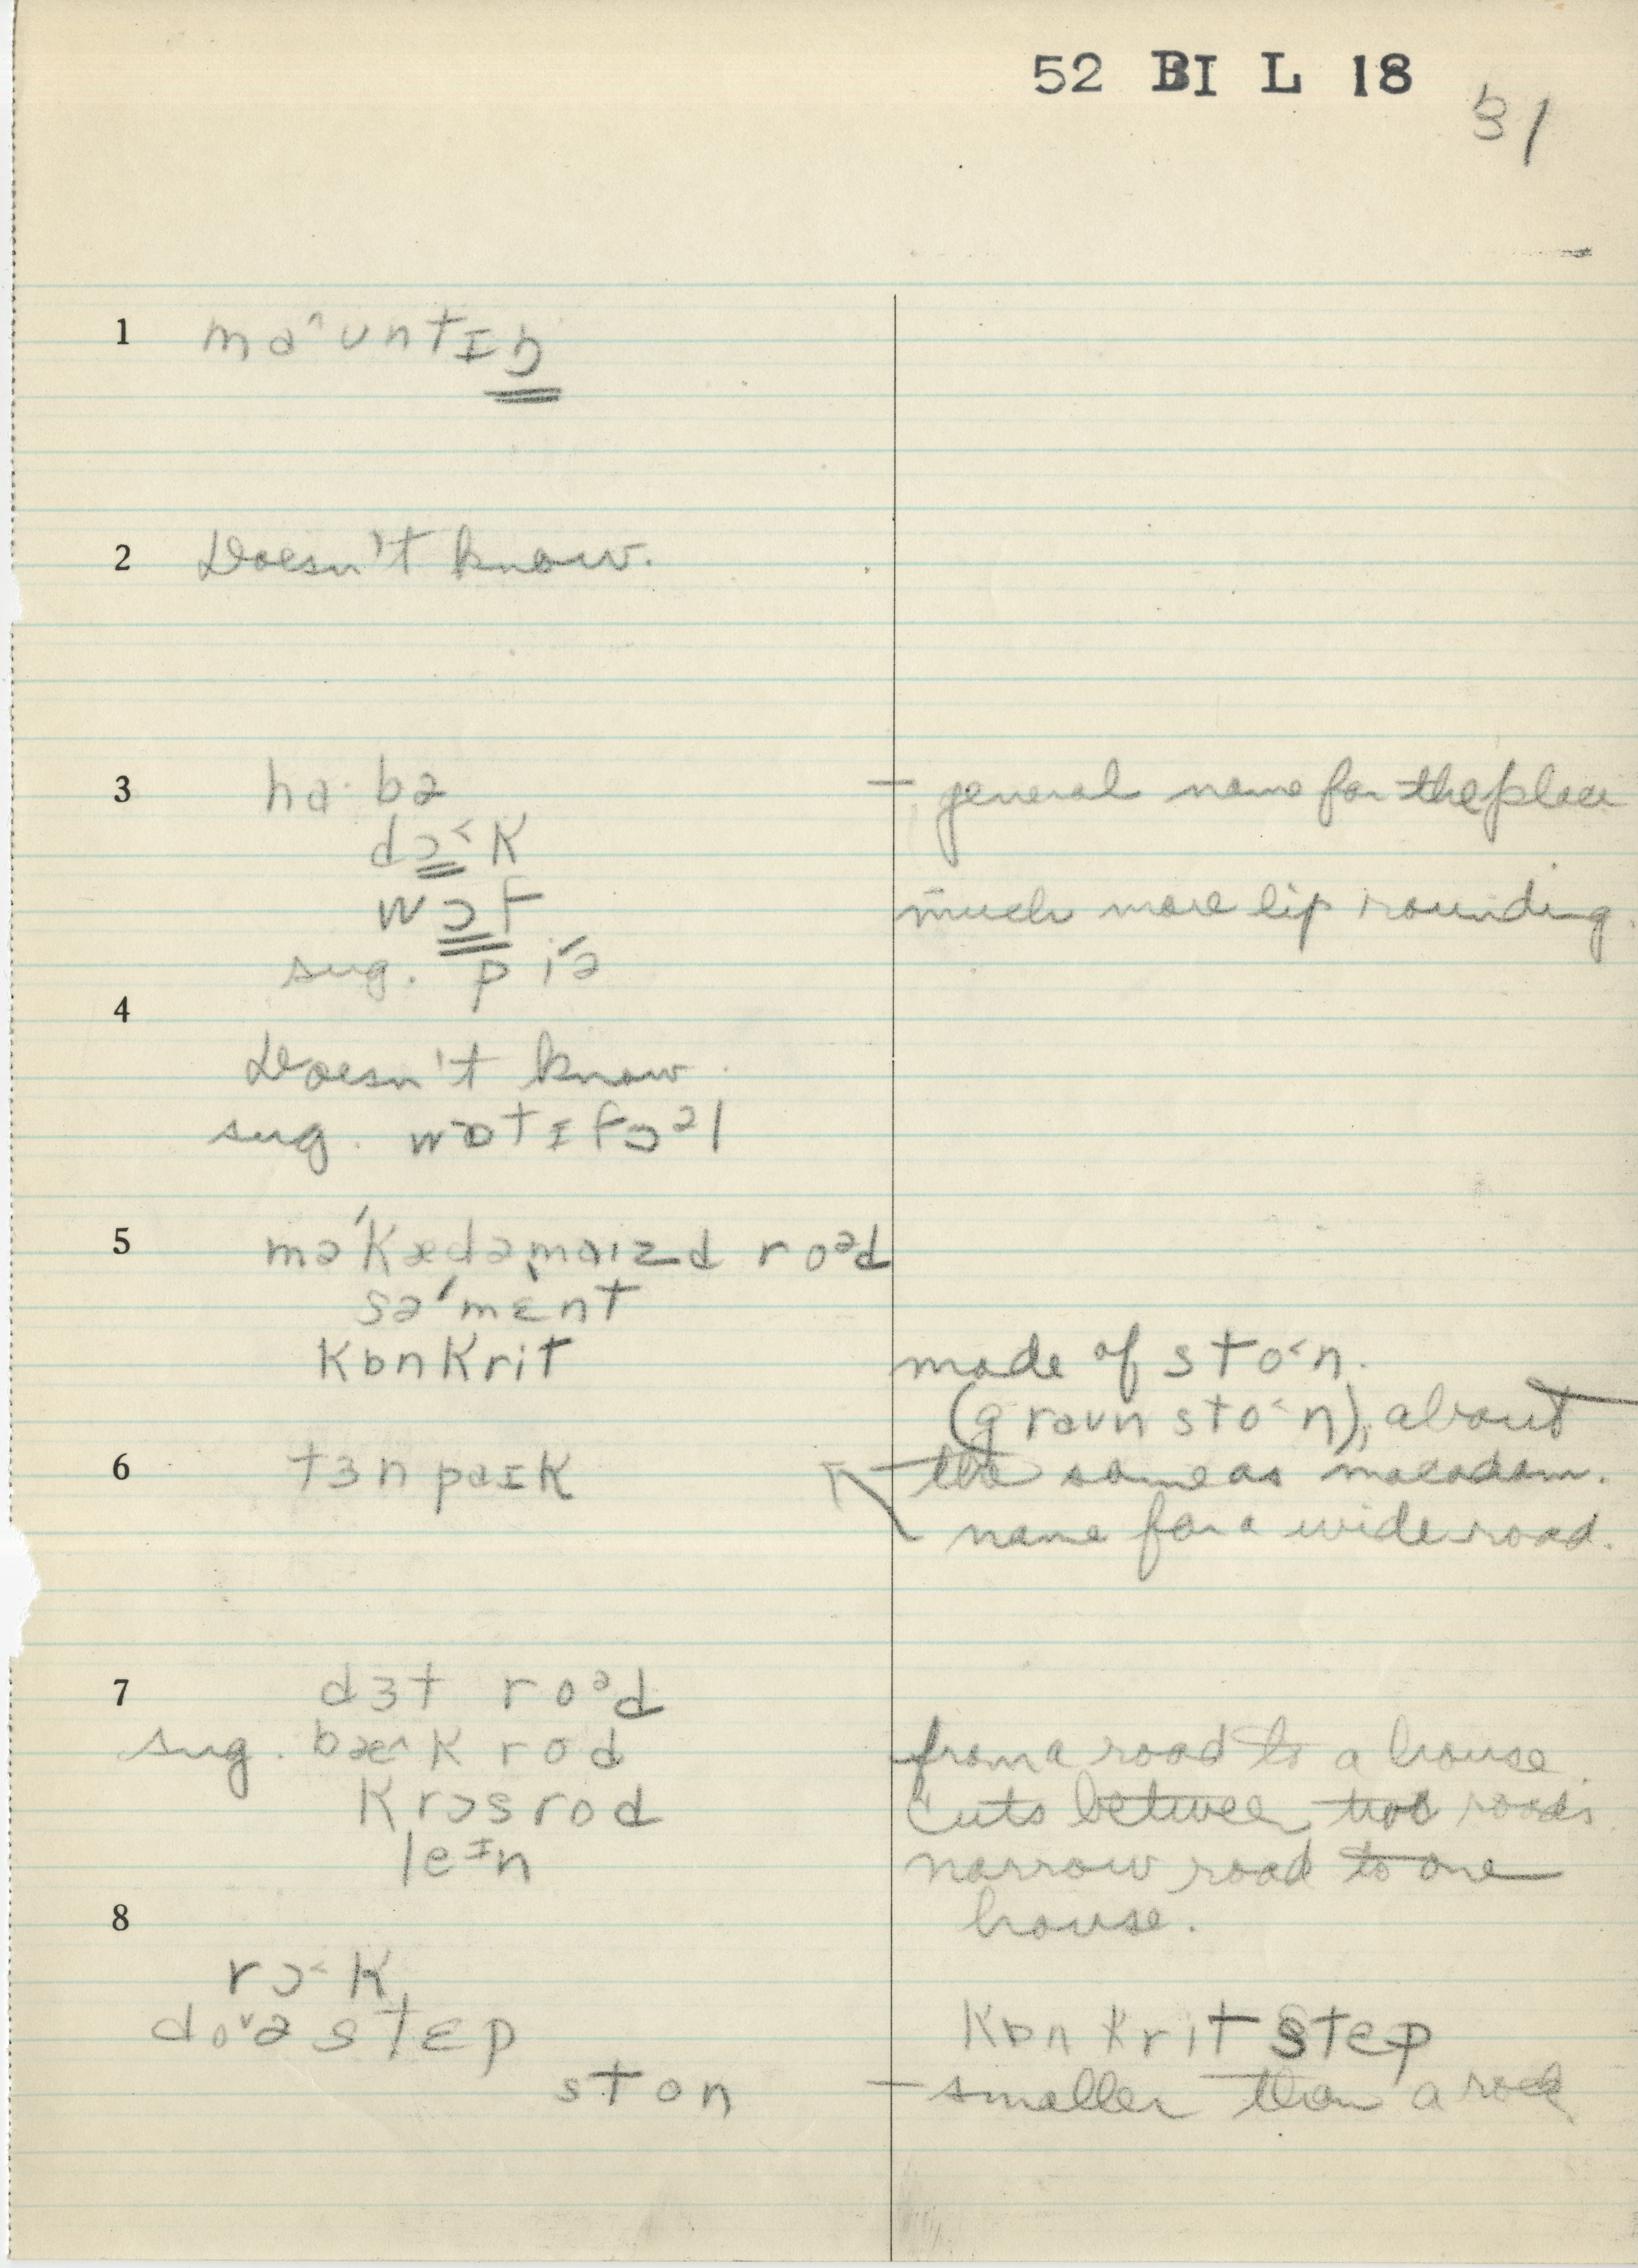 52 BI L 18
31
1 ma^ʊntɪŋ
2 Doesn't know.
3 ha·bə — general name for the place
dɔ˂k
wɔf much more lip rounding.
sug. pi´ə
4
Doesn't know.
sug. wɒtɪfɔᵊl
5 mə´kædəmaɪzd roᵊd
sə´mɛnt
kɒnkrit made of sto˂n.
(graʊn sto˂n), about
6 tɜnpaɪk — the same as macadam.
name for a wide road.
7 dɜt roᵊd
sug. bæ^k rod from a road to a house.
krɔsrod cuts between two roads.
leᶦn narrow road to one
8 house.
rɔ˂k
do˅ə stɛp kɒnkrit stɛp
ston — smaller than a rock